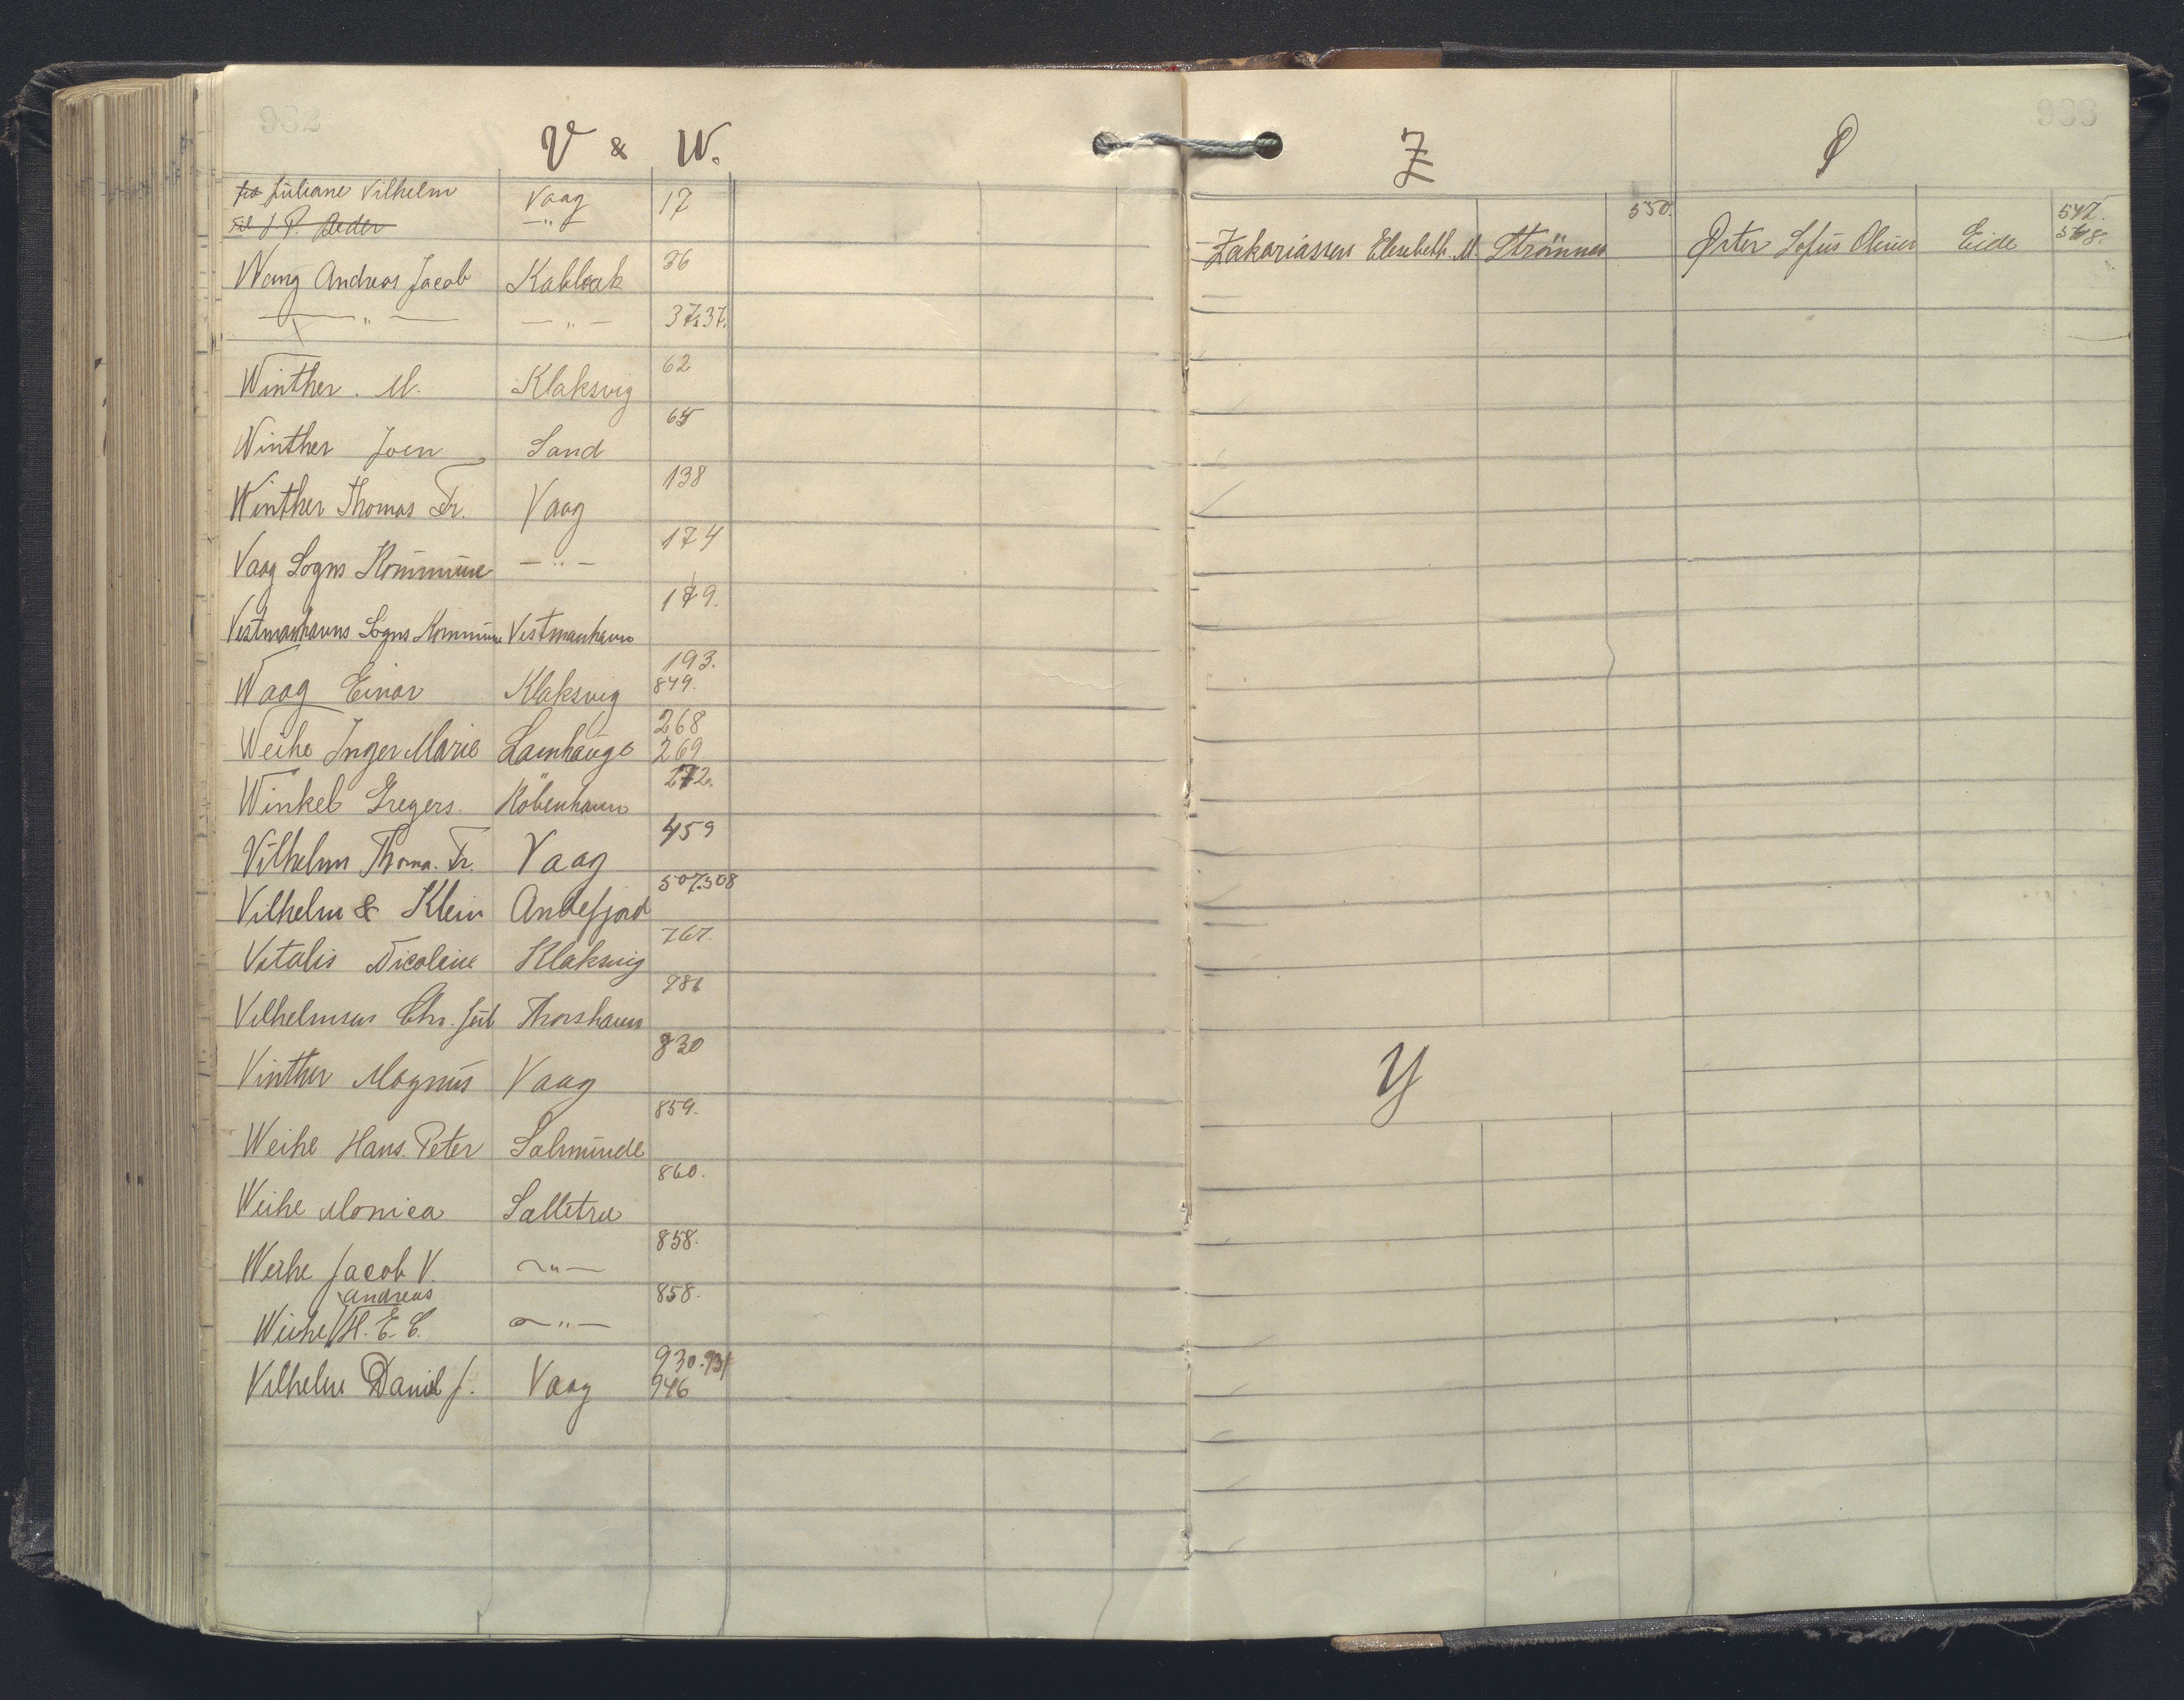 982
V & W.
fra Juliane Vilhelm Vaag 17
til J. P. —"—
Wang Andreas Jacob Kablbak 36
— " — — " — 37.37.
Winther. M. Klaksvig 62
Winther Joen Sand 65
Winther Thomas Fr. Vaag 138
Vaag Sogns Kommune — " — 174
Vestmanhavns Sogns Kommune Vestmanhavn 179.
Waag Einar Klaksvig 193.
849.
Weihe Inger Marie Lamhauge 268
269.
Winkel Gregers. København 272.
Vilhelm Thoma. Fr. Vaag 459
Vilhelm & Klein Andefjord 507.508
Vitalis Nicoline Klaksvig 767.
Vilhelmsen Chr. Thorshavn
Vinther Magnus Vaag 830
Weihe Hans. Peter Salmunde 859.
Weihe Monica Salletru 860.
Weihe Jacob V. — " — 858.
Andreas
Weihe H. E. C. — " — 858.
Vilhelm Daniel J. Vaag 930.931
946
983
Z
Zakariassen Elisabeth. M. Strømnes 550.
Y
Ø
Øster Sofus Oliver Eide 547.
548.